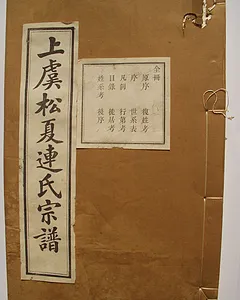 上虞松夏連氏宗譜
全冊
原序 復姓考
序 世系表
凡例 行第考
目錄 徙居考
姓氏考 後序